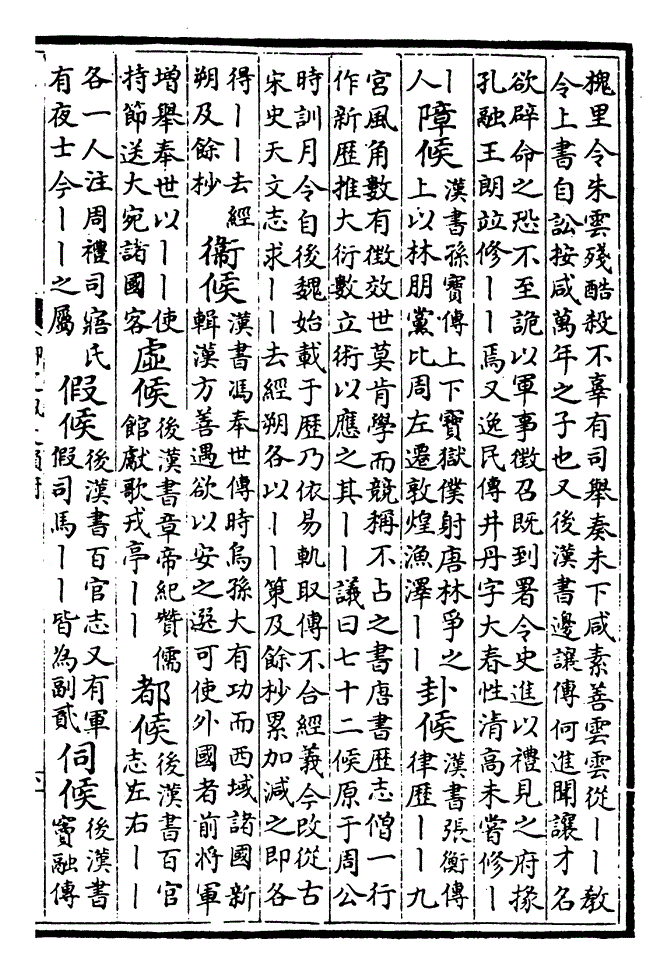 槐里令朱雲殘酷殺不辜有司舉奏未下咸素善雲雲從丨丨教
令上書自訟按咸萬年之子也又後漢書邊讓傳何進聞讓才名
欲辟命之恐不至詭以軍事徵召既到署令史進以禮見之府掾
孔融王朗竝修丨丨焉又逸民傳井丹字大春性清高未嘗修丨
丨
人
障候
漢書孫寶傳上下寶獄僕射唐林爭之
上以林朋黨比周左遷敦煌漁澤丨丨
卦候
漢書張衡傳
律歷丨丨九
宮風角數有徵效世莫肯學而競稱不占之書唐書歷志僧一行
作新歷推大衍數立術以應之其丨丨議曰七十二候原于周公
時訓月令自後魏始載于歷乃依易軌取傳不合經義今改從古
宋史天文志求丨丨去經朔各以丨丨策及餘杪累加減之即各
得丨丨去經
朔及餘杪
衞候
漢書馮奉世傳時烏孫大有功而西域諸國新
輯漢方善遇欲以安之選可使外國者前將軍
增舉奉世以丨丨使
持節送大宛諸國客
虛候
後漢書章帝紀贊儒
館獻歌戎亭丨丨
都候
後漢書百官
志左右丨丨
各一人注周禮司寤氏
有夜士今丨丨之屬
假候
後漢書百官志又有軍
假司馬丨丨皆為副貳
伺候
後漢書
竇融傳